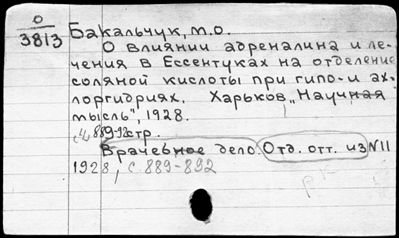 О
3813
Бакальчук, М.О.
О влиянии адреналина и ле-
чения в Ессентуках на отделение
соляной кислоты при гипо- и ах-
лоргидриях. Харьков, „Научная
мысль", 1928.
с. 889-92 стр.
Врачебное дело. Отд. отт. из №11
1928, с. 889-892